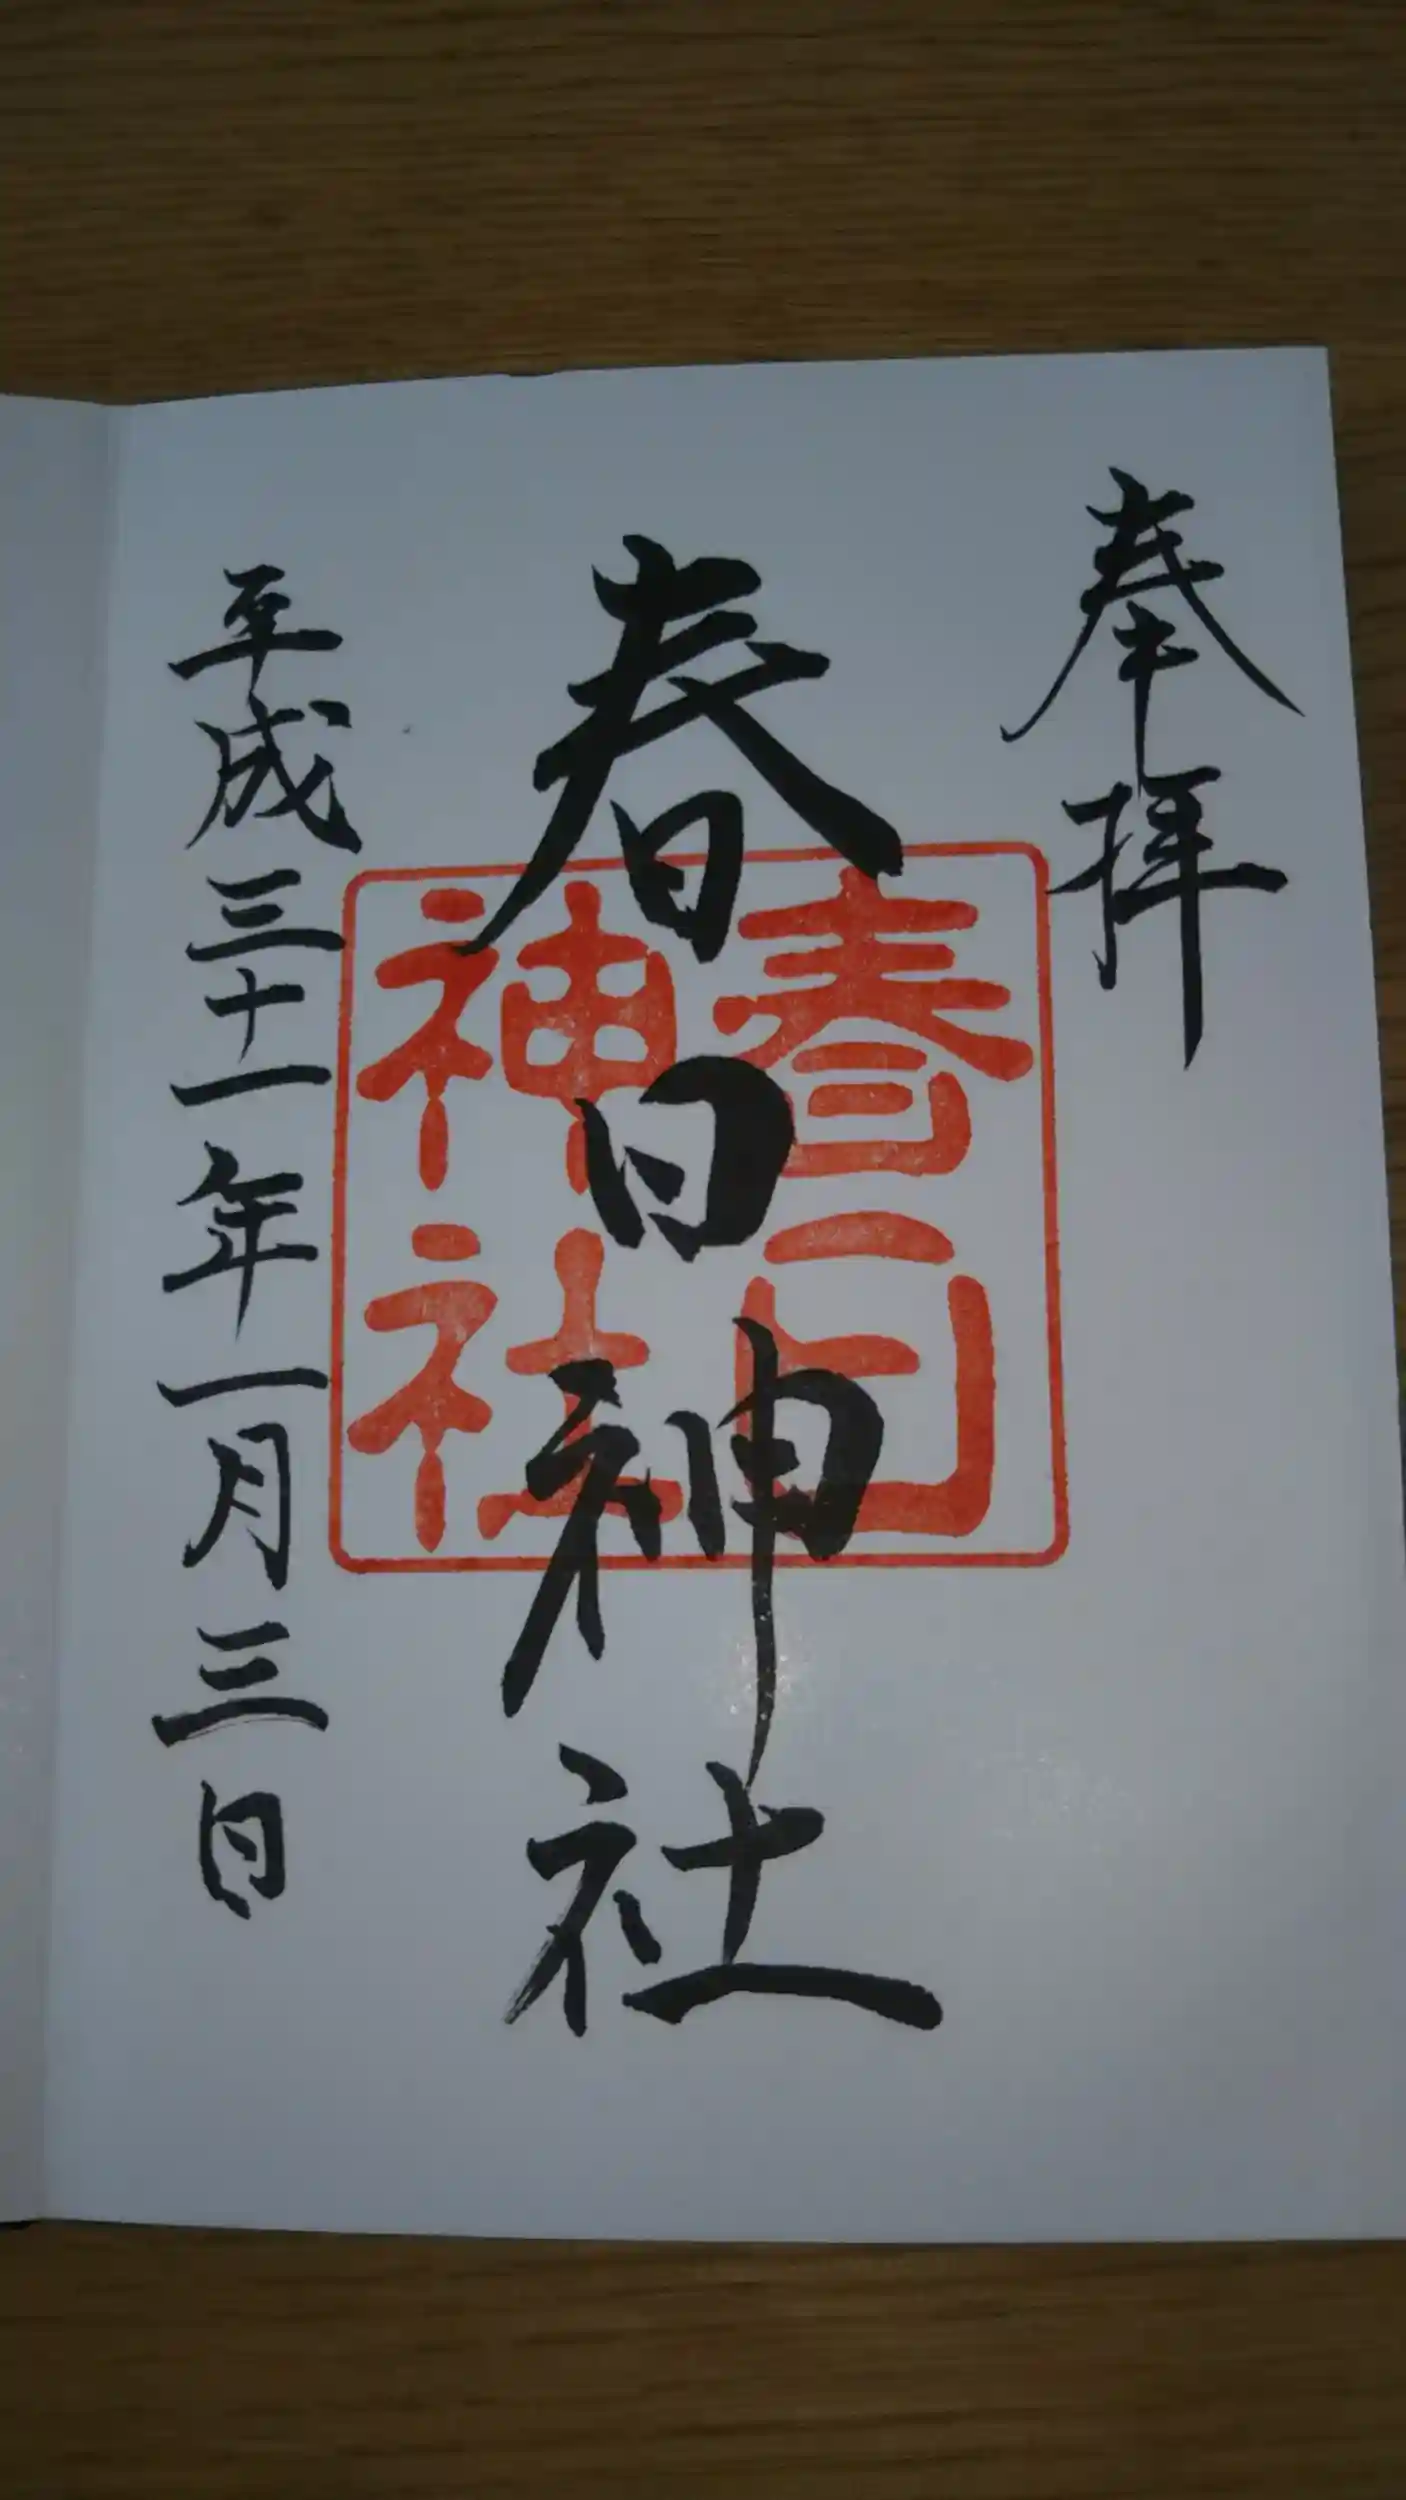 奉拝
春日神社
春日
神社
平成三十一年一月三日